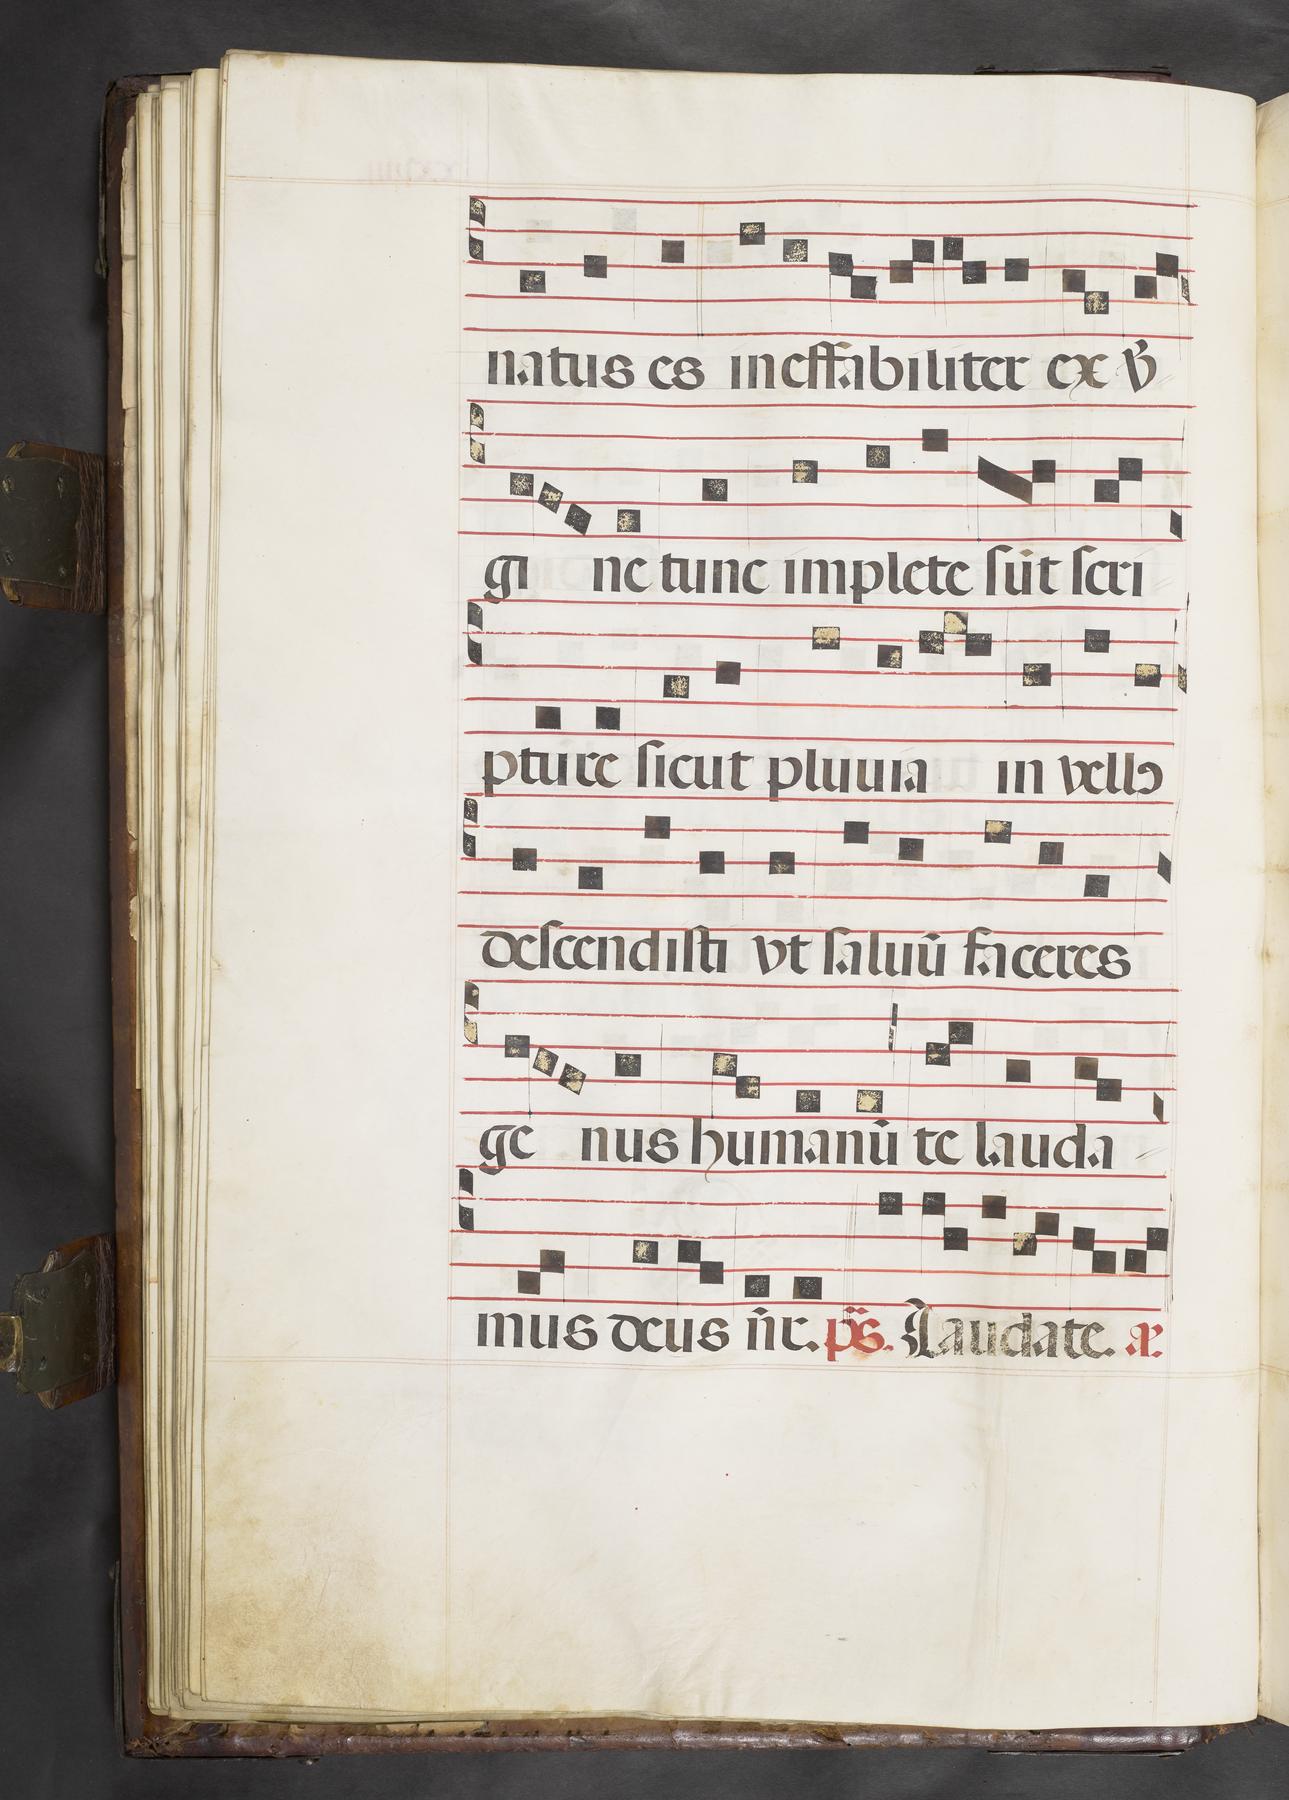 natus es ineffabiliter ex v̄
gi ne tunc implete sūt scri
pture sicut pluuia in vello
descendisti vt saluū faceres
ge nus humanū te lauda
mus deus nr̄. ps̄. Laudate. a.